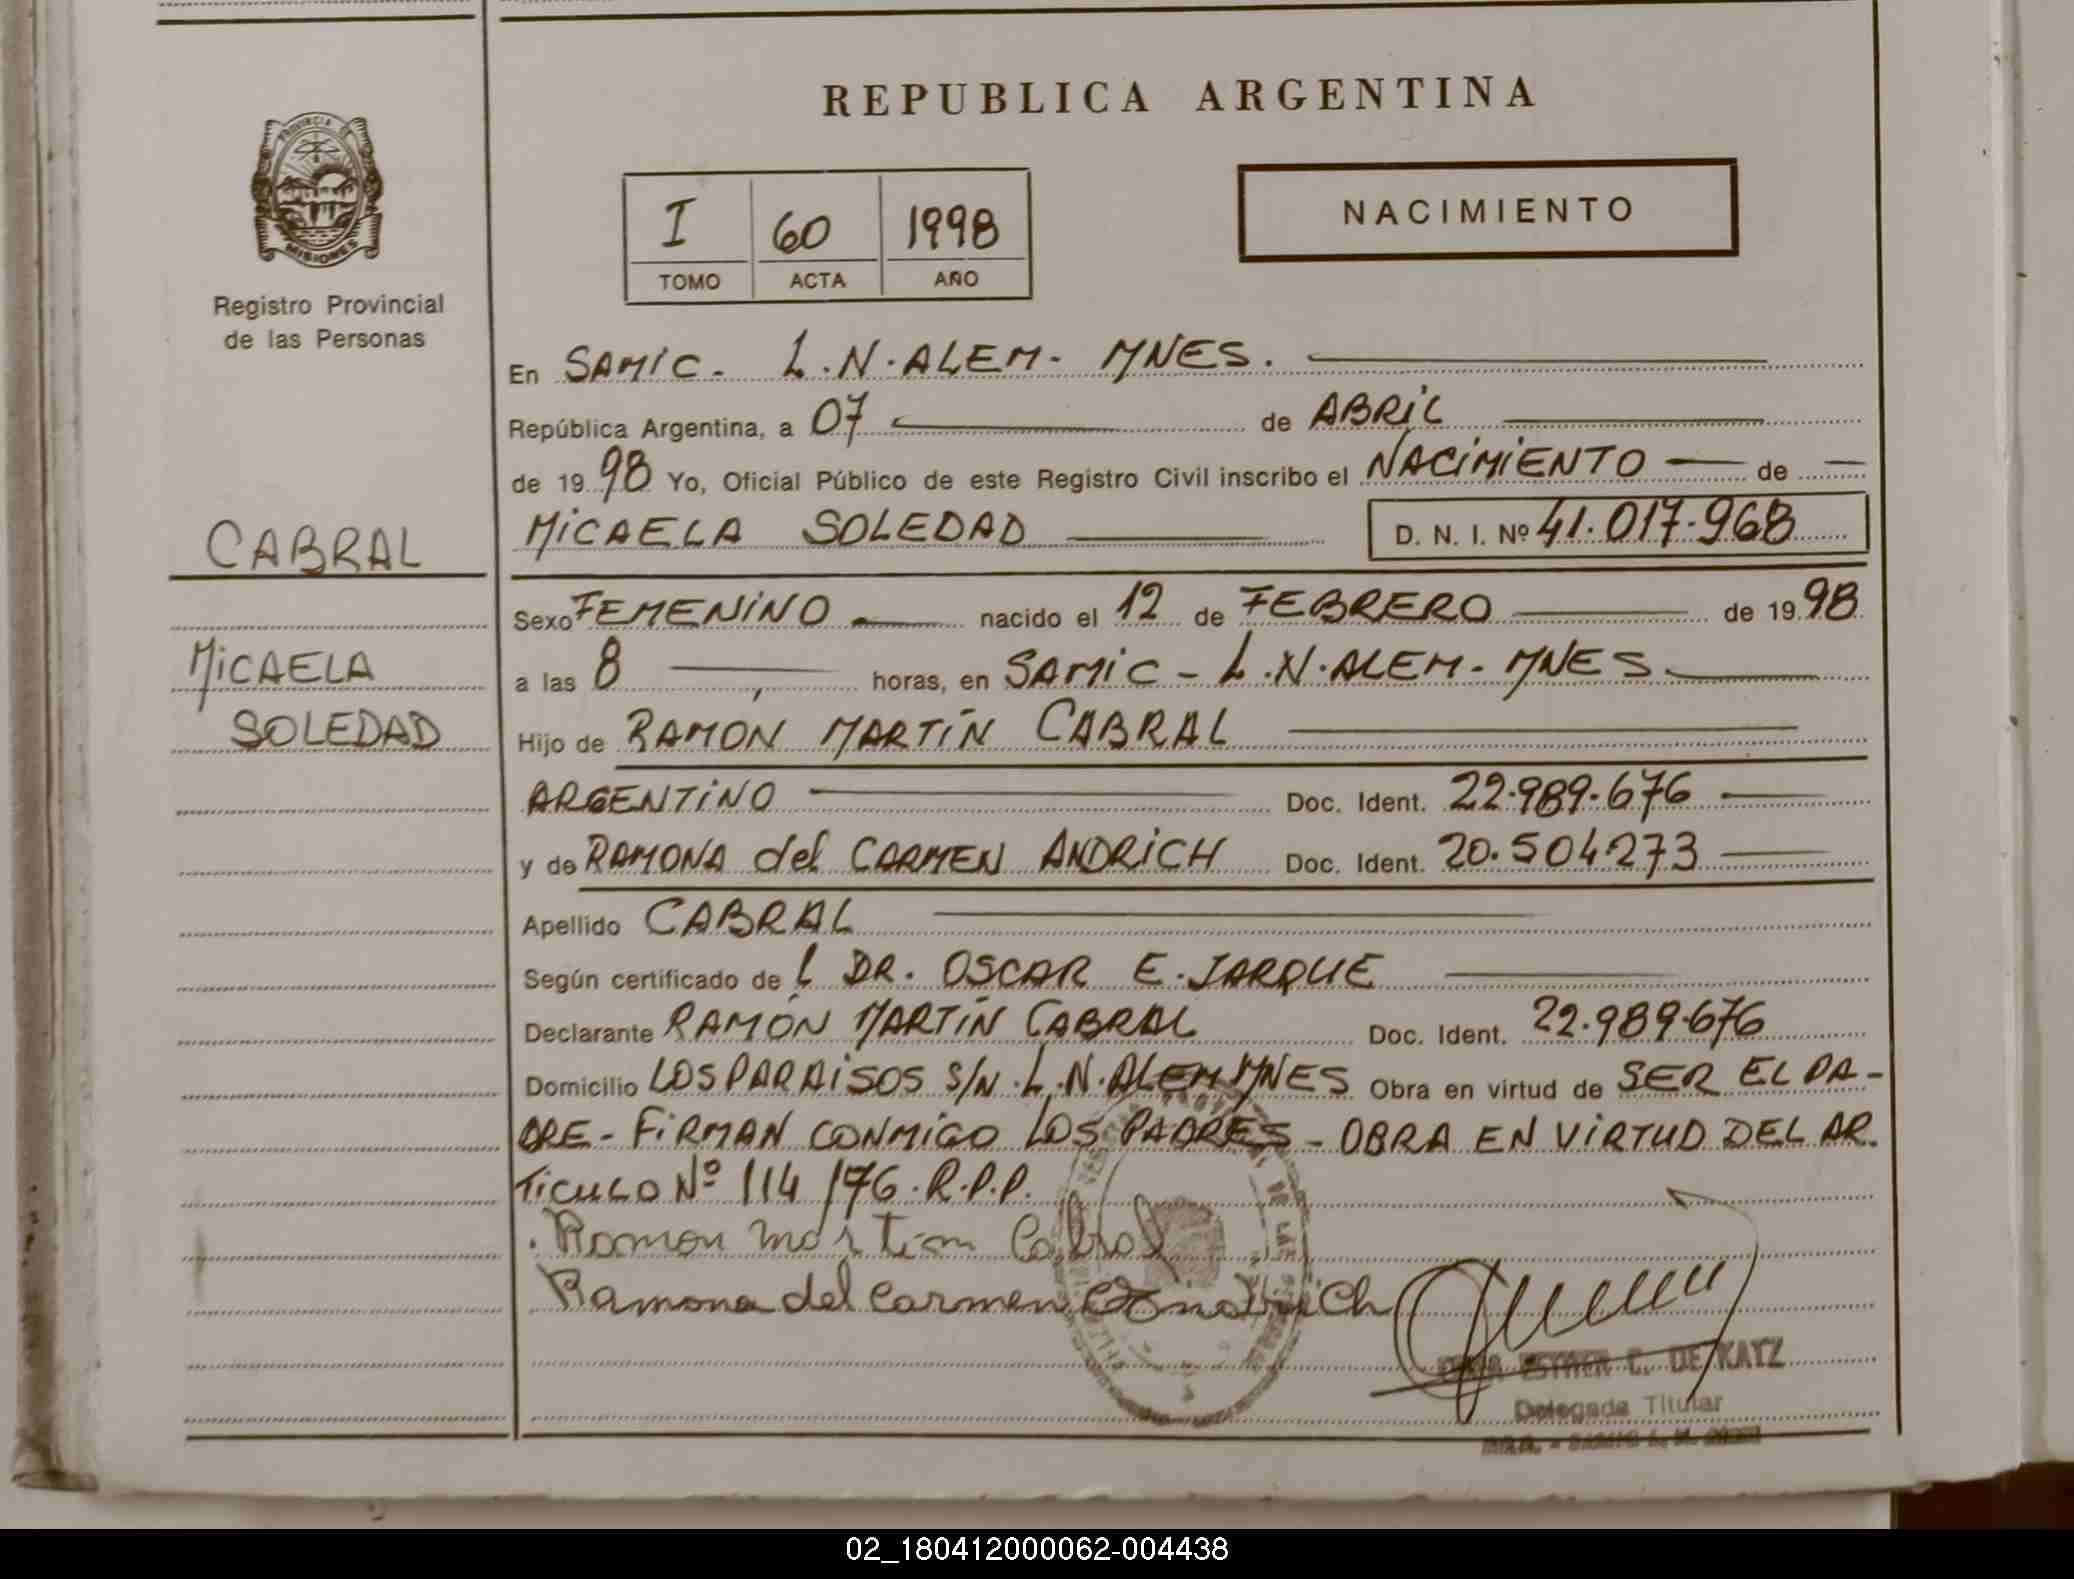 REPUBLICA ARGENTINA
PROVINCIA DE
MISIONES
Registro Provincial
de las Personas
I 60 1998
TOMO ACTA AÑO
NACIMIENTO
En SAMIC - L.N.ALEM - MNES.
República Argentina, a 07 de ABRIL
de 1998 Yo, Oficial Público de este Registro Civil inscribo el NACIMIENTO de
CABRAL
MICAELA SOLEDAD D. N. I. Nº 41.017.968
Sexo FEMENINO nacido el 12 de FEBRERO de 1998
MICAELA
a las 8 horas, en SAMIC - L.N.ALEM - MNES
SOLEDAD
Hijo de RAMÓN MARTÍN CABRAL
ARGENTINO Doc. Ident. 22.989.676
y de RAMONA del CARMEN ANDRICH Doc. Ident. 20.504.273
Apellido CABRAL
Según certificado de L DR. OSCAR E. JARQUE
Declarante RAMÓN MARTÍN CABRAL Doc. Ident. 22.989.676
Domicilio LOS PARAISOS S/N. L.N.ALEM MNES Obra en virtud de SER EL PA-
DRE - FIRMAN CONMIGO LOS PADRES - OBRA EN VIRTUD DEL AR.
TICULO Nº 114/76. R.P.P.
Ramon martin Cabral
Ramona del Carmen Andrich
ESTHER C. DE KATZ
Delegada Titular
02_180412000062-004438